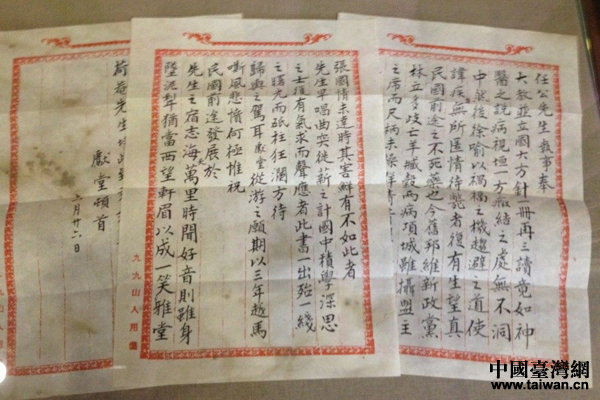 任公先生執事奉
大教並立國大方針一冊再三讀竟如神
醫之說病現垣一方癥結之處無不洞
中然後徐喻以禍福之機趨避之道使
諱疾無所匿情待斃者復有生望真
民國前途之不死藥也今舊邦維新政黨
林立多歧亡羊臧穀兩病項城雖攝盟主
之席而尺柄未張
張國情未達時其害鮮有不如此者
先生早唱曲突徙薪之計國中積學深思
之士後有氣求而聲應者此書一出殆一綫
之曙光而砥柱狂瀾方待
歸與之駕耳獻堂從游之願期以三年越馬
嘶風悲憤何極惟祝
民國前途發展於
先生之宿志海天萬里時聞好音則雖身
墜泥犁猶當西望軒眉以成一笑雅堂
九九山人用箋
荷菴先生均此
獻堂頓首
六月廿六日
九九山人用箋
中國臺灣網
www.taiwan.cn